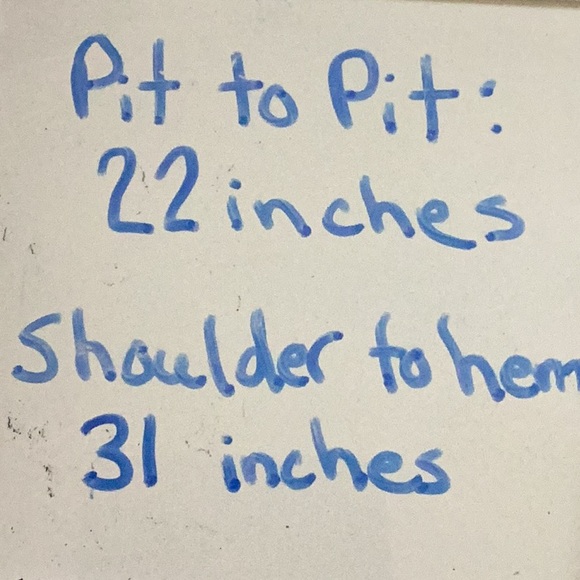 Pit to Pit:
22 inches
Shoulder to hem
31 inches